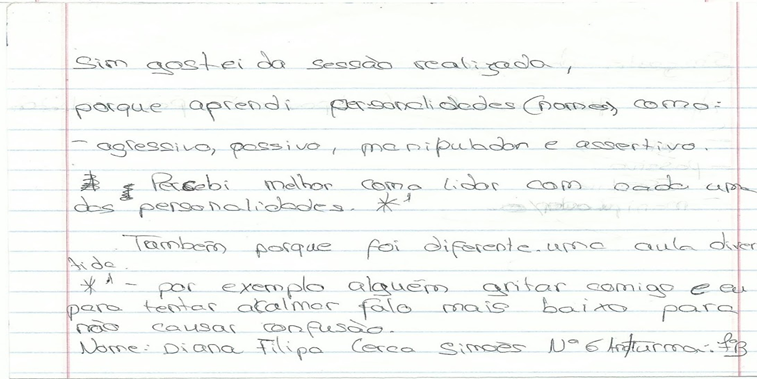 Sim gostei da sessão realizada,
porque aprendi personalidades (nomes) como:
- agressivo, passivo, manipulador e assertivo.
Percebi melhor como lidar com cada uma
das personalidades. *¹
Também porque foi diferente. uma aula diver
tida.
*¹ - por exemplo alguém gritar comigo e eu
para tentar acalmar falo mais baixo para
não causar confusão.
Nome: Diana Filipa Cerca Simões Nº 6 turma: B